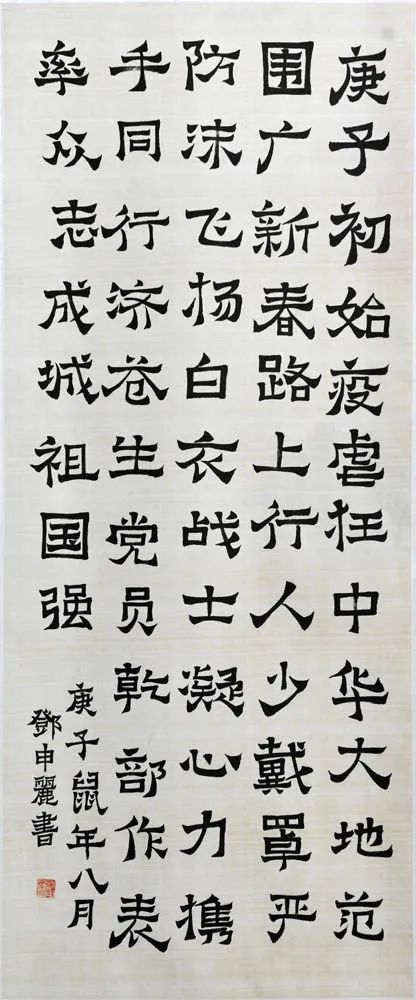 庚子初始疫虐狂中华大地范
围广新春路上行人少戴罩严
防沫飞扬白衣战士凝心力携
手同行济苍生党员乾部作表
率众志成城祖国强
庚子鼠年八月
鄧申麗書